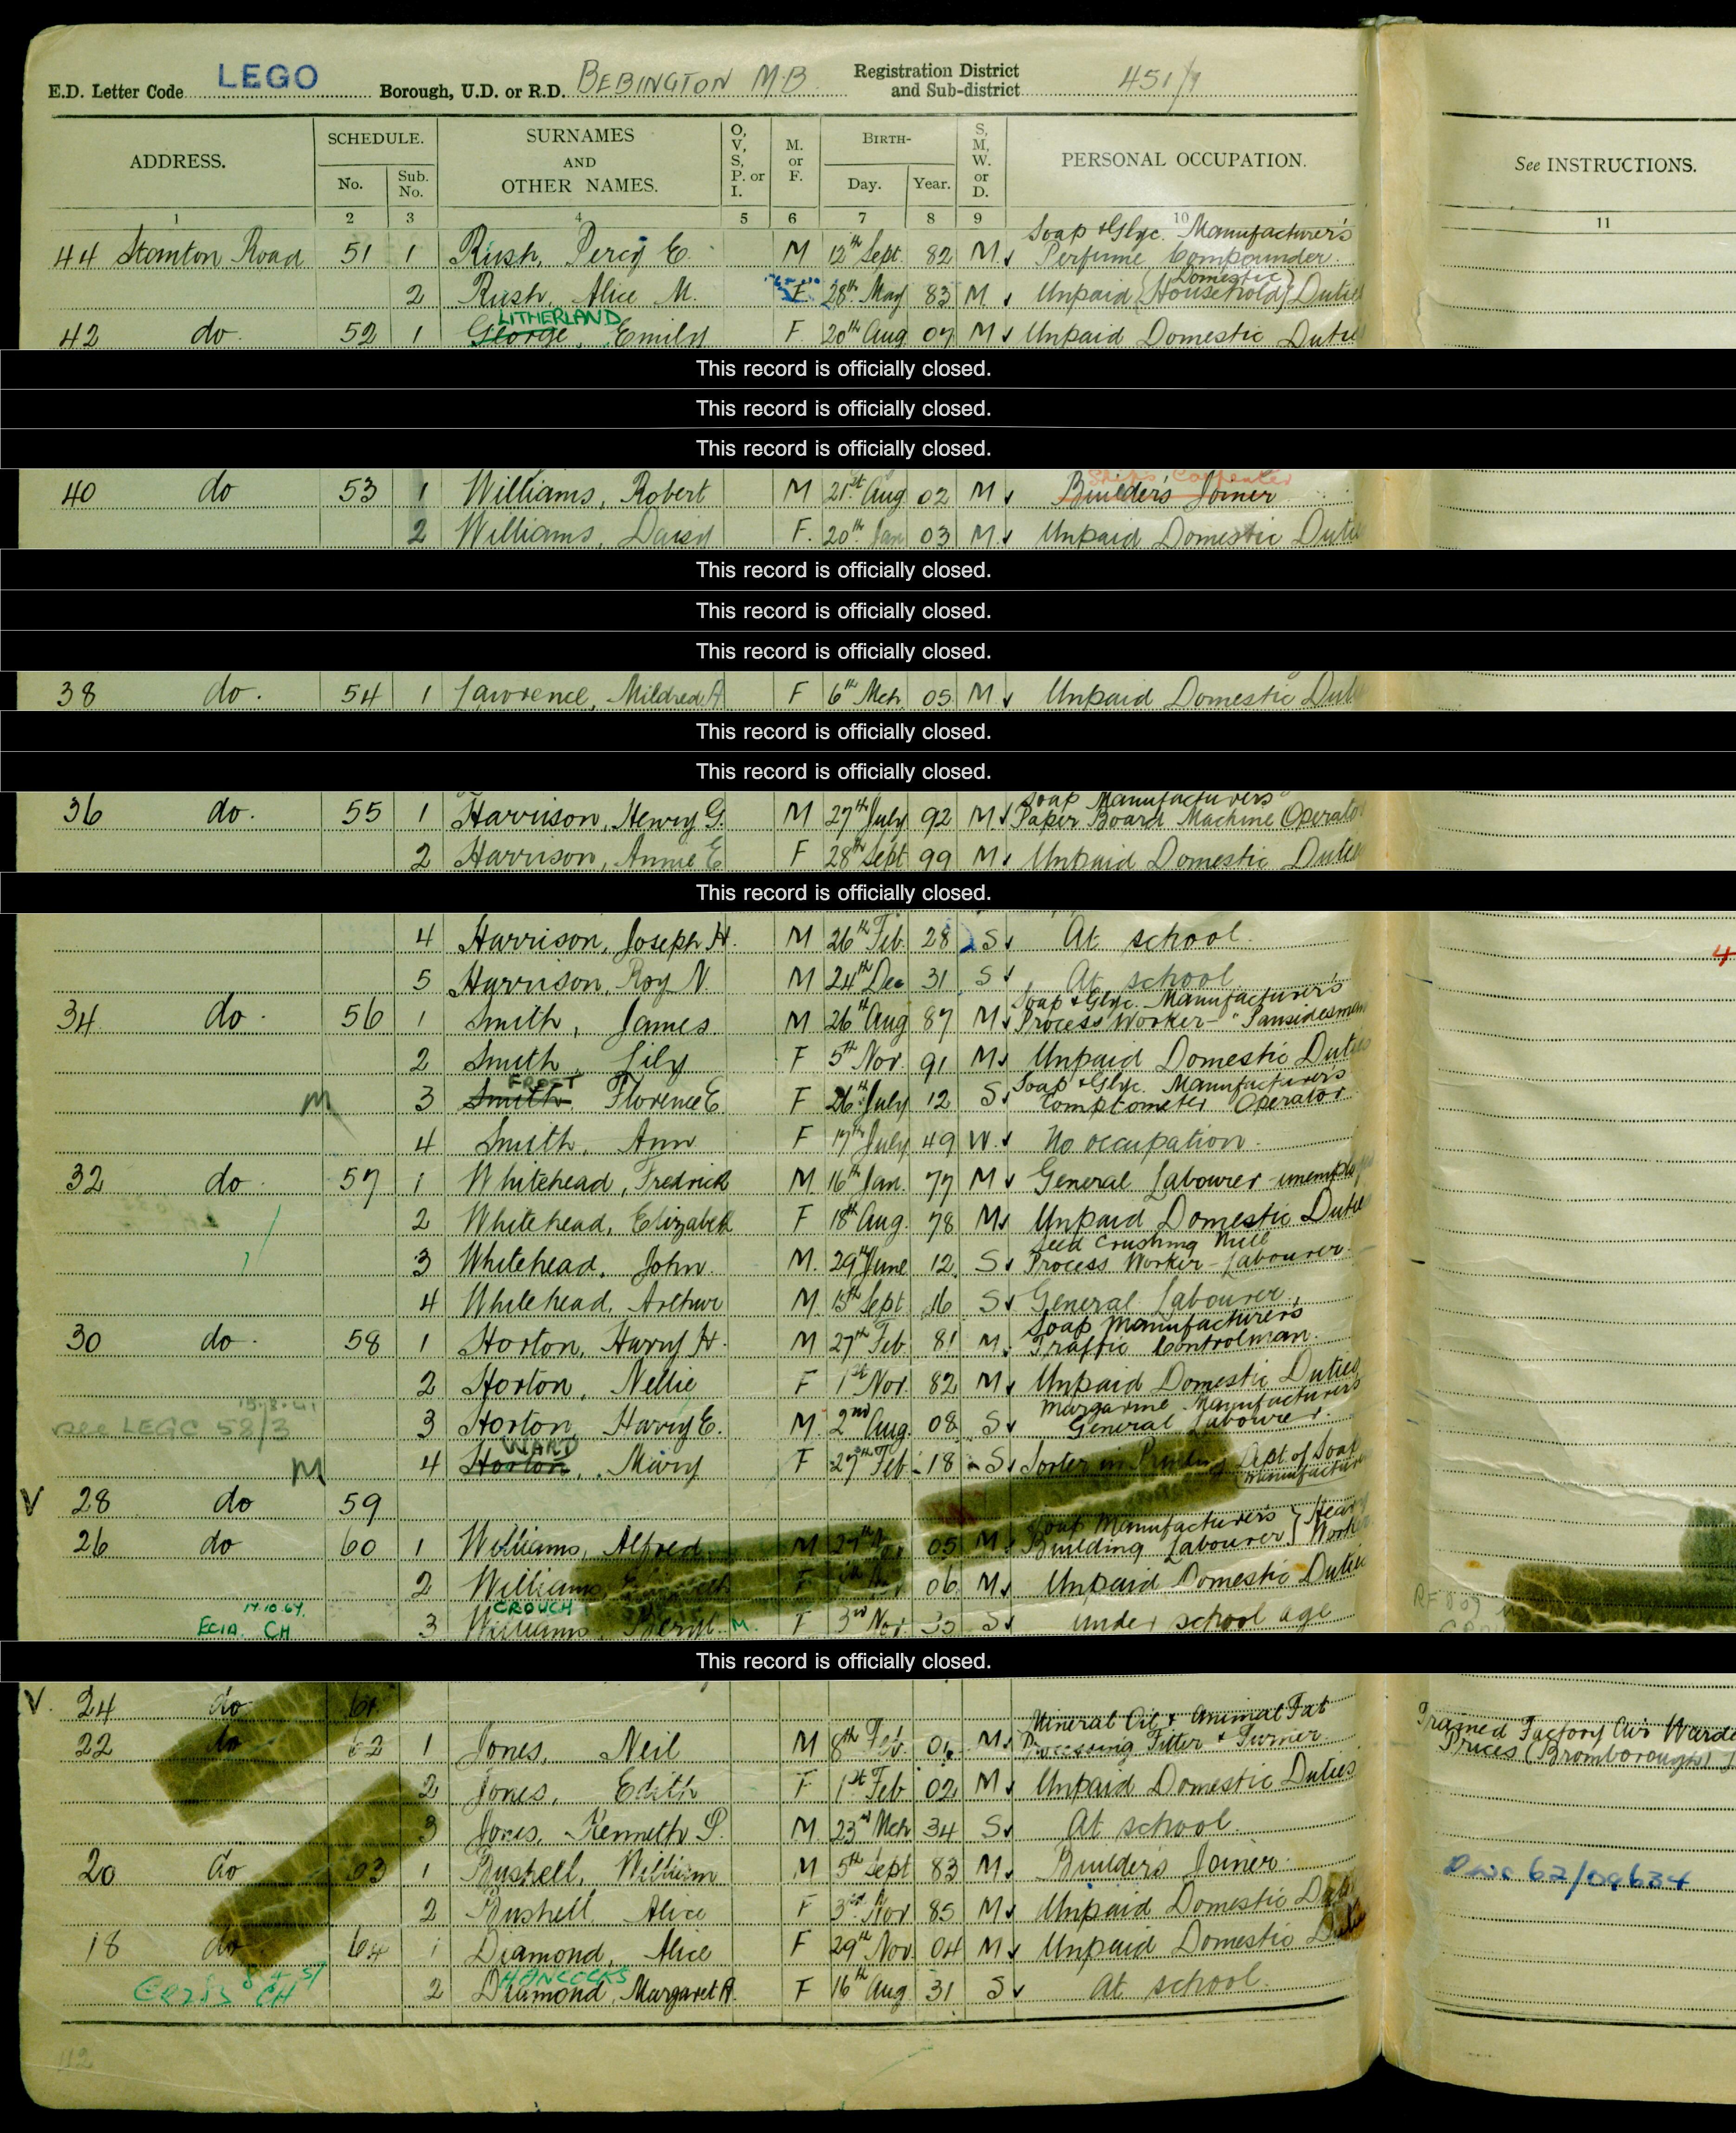 E.D. Letter Code LEGO Borough, U.D. or R.D. BEBINGTON M.B. Registration District and Sub-district 451/1
ADDRESS. SCHEDULE. No. Sub. No. SURNAMES AND OTHER NAMES. O, V, S, P. or I. M. or F. BIRTH- Day. Year. S, M, W. or D. PERSONAL OCCUPATION. See INSTRUCTIONS.
1 2 3 4 5 6 7 8 9 10 11
Soap & Glyc. Manufacturer's
44 Stanton Road 51 1 Rush, Percy E. M 12th Sept. 82 M Perfume Compounder.
Domestic
2 Rush, Alice M. F 28th May 83 M Unpaid (Household) Duties
LITHERLAND
42 do. 52 1 George, Emily F. 20th Aug 07 M Unpaid Domestic Duties
This record is officially closed.
This record is officially closed.
This record is officially closed.
Ship's Carpenter
40 do 53 1 Williams, Robert M 21st Aug 02 M Builder's Joiner
2 Williams, Daisy F. 20th Jan 03 M Unpaid Domestic Duties
This record is officially closed.
This record is officially closed.
This record is officially closed.
38 do. 54 1 Lawrence, Mildred A F 6th Mch 05 M Unpaid Domestic Duties
This record is officially closed.
This record is officially closed.
Soap Manufacturers
36 do. 55 1 Harrison, Henry G. M 27th July 92 M Paper Board Machine Operator
2 Harrison, Annie E F 28th Sept 99 M Unpaid Domestic Duties
This record is officially closed.
4 Harrison, Joseph H. M 26th Feb. 28 S At school.
5 Harrison, Roy N. M 24th Dec 31 S At school
Soap & Glyc. Manufacturer's
34 do. 56 1 Smith, James. M 26th Aug 87 M Process Worker - "Pansidesman
2 Smith, Lily F 5th Nov. 91 M Unpaid Domestic Duties
FROST Soap & Glyc. Manufacturer's
M 3 Smith. Florence E F 26th July 12 S Comptometer Operator
4 Smith, Ann F 17th July 49 W. No occupation.
32 do. 57 1 Whitehead, Fredrick M. 16th Jan. 77 M General Labourer unemployed
2 Whitehead, Elizabeth F 18th Aug. 78 M Unpaid Domestic Duties
Seed Crushing Mill
3 Whitehead, John. M. 29th June 12 S Process Worker - Labourer.
4 Whitehead, Arthur M. 15th Sept 16 S General Labourer.
Soap Manufacturers
30 do. 58 1 Horton, Harry H. M 27th Feb 81 M. Traffic Controlman.
2 Horton, Nellie F 1st Nov. 82 M Unpaid Domestic Duties
Margarine Manufacturers
see LEGC 58/3 3 Horton, Harry E. M. 2nd Aug. 08 S General Labourer.
WARD
M 4 Horton, Mary F 27th Feb 18 S Sorter in Printing Dept. of Soap Manufacturer
V 28 do 59
Soap Manufacturers } Heavy
26 do 60 1 Williams, Alfred M 05 M Building Labourer } Worker
2 Williams, F 06 M Unpaid Domestic Duties
17.10.64. CROUCH
ECIA CH 3 Williams, Beryl. M. F 3rd Nov 35 S under school age
This record is officially closed.
V. 24 do 61
Mineral Oil & Animal Fat Trained Factory Air Warden
22 do 62 1 Jones, Neil M 8th Feb. 01 M Processing Fitter & Turner. Prices (Bromborough)
2 Jones, Edith F 1st Feb 02 M Unpaid Domestic Duties
3 Jones, Kenneth S. M 23rd Mch 34 S At school.
20 do 63 1 Bushell, William M 5th Sept 83 M. Builder's Joiner.
2 Bushell, Alice F 3rd Nov 85 M Unpaid Domestic Duties
18 do 64 1 Diamond, Alice F 29th Nov. 04 M Unpaid Domestic Duties
HANCOCKS
CH 2 Diamond, Margaret A. F 16th Aug. 31 S At school.